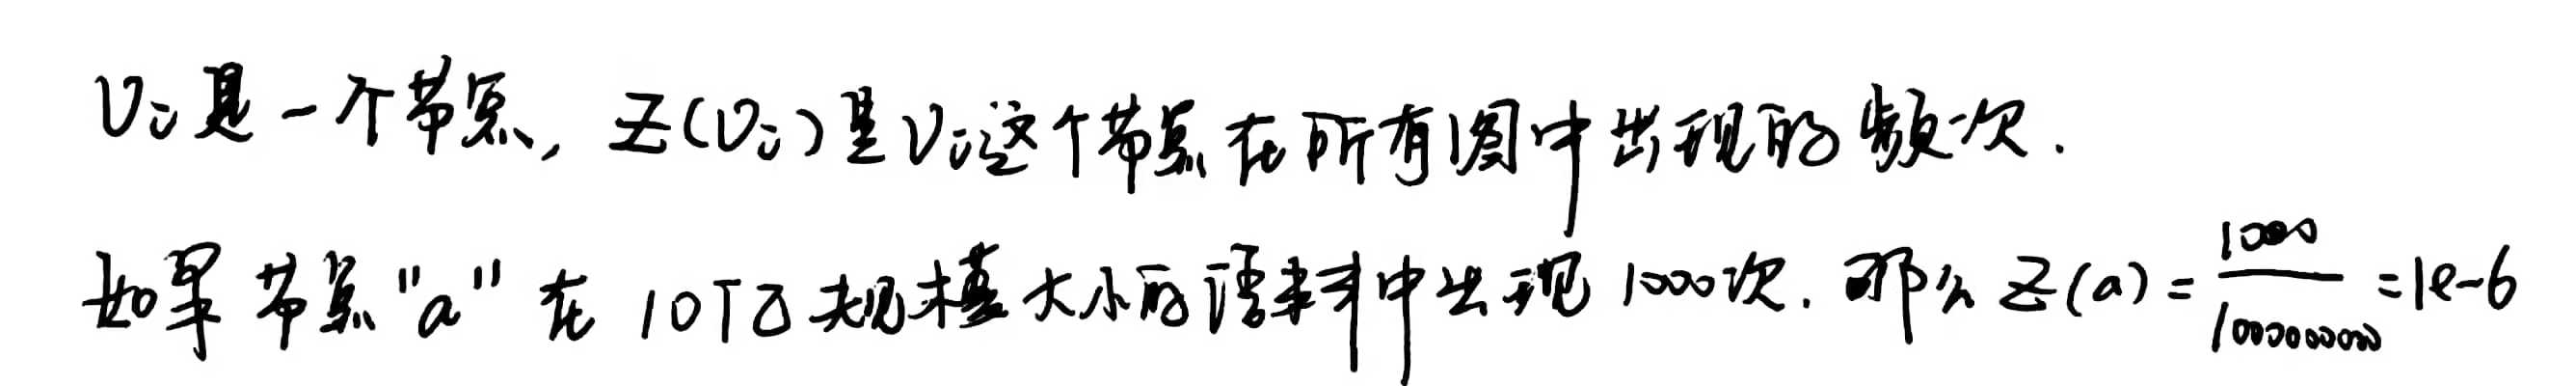 Vi是一个节点, Z(Vi)是Vi这个节点在所有图中出现的频次.
如果节点"a"在10亿规模大小的语料中出现1000次. 那么Z(a)=1000/1000000000=1e-6